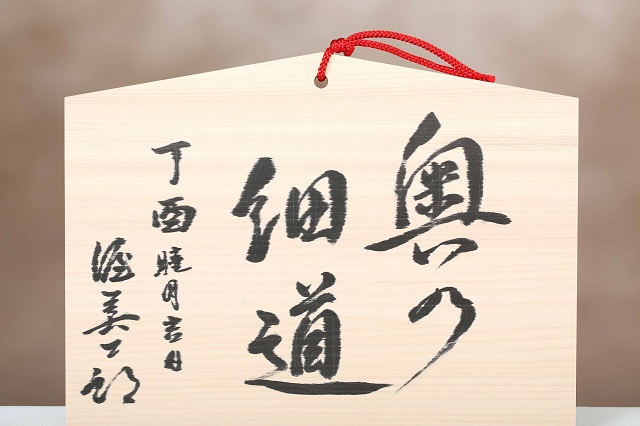 奥の
細道
丁酉睦月吉日
渥美二郎